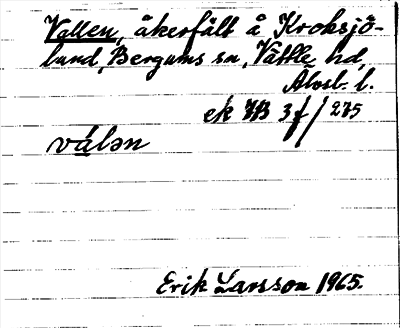 Vallen, åkerfält å Kroksjö-
lund, Bergums sn, Vättle hd,
Älvsb. l.
ek 7B 3f/275
válen
Erik Larsson 1965.